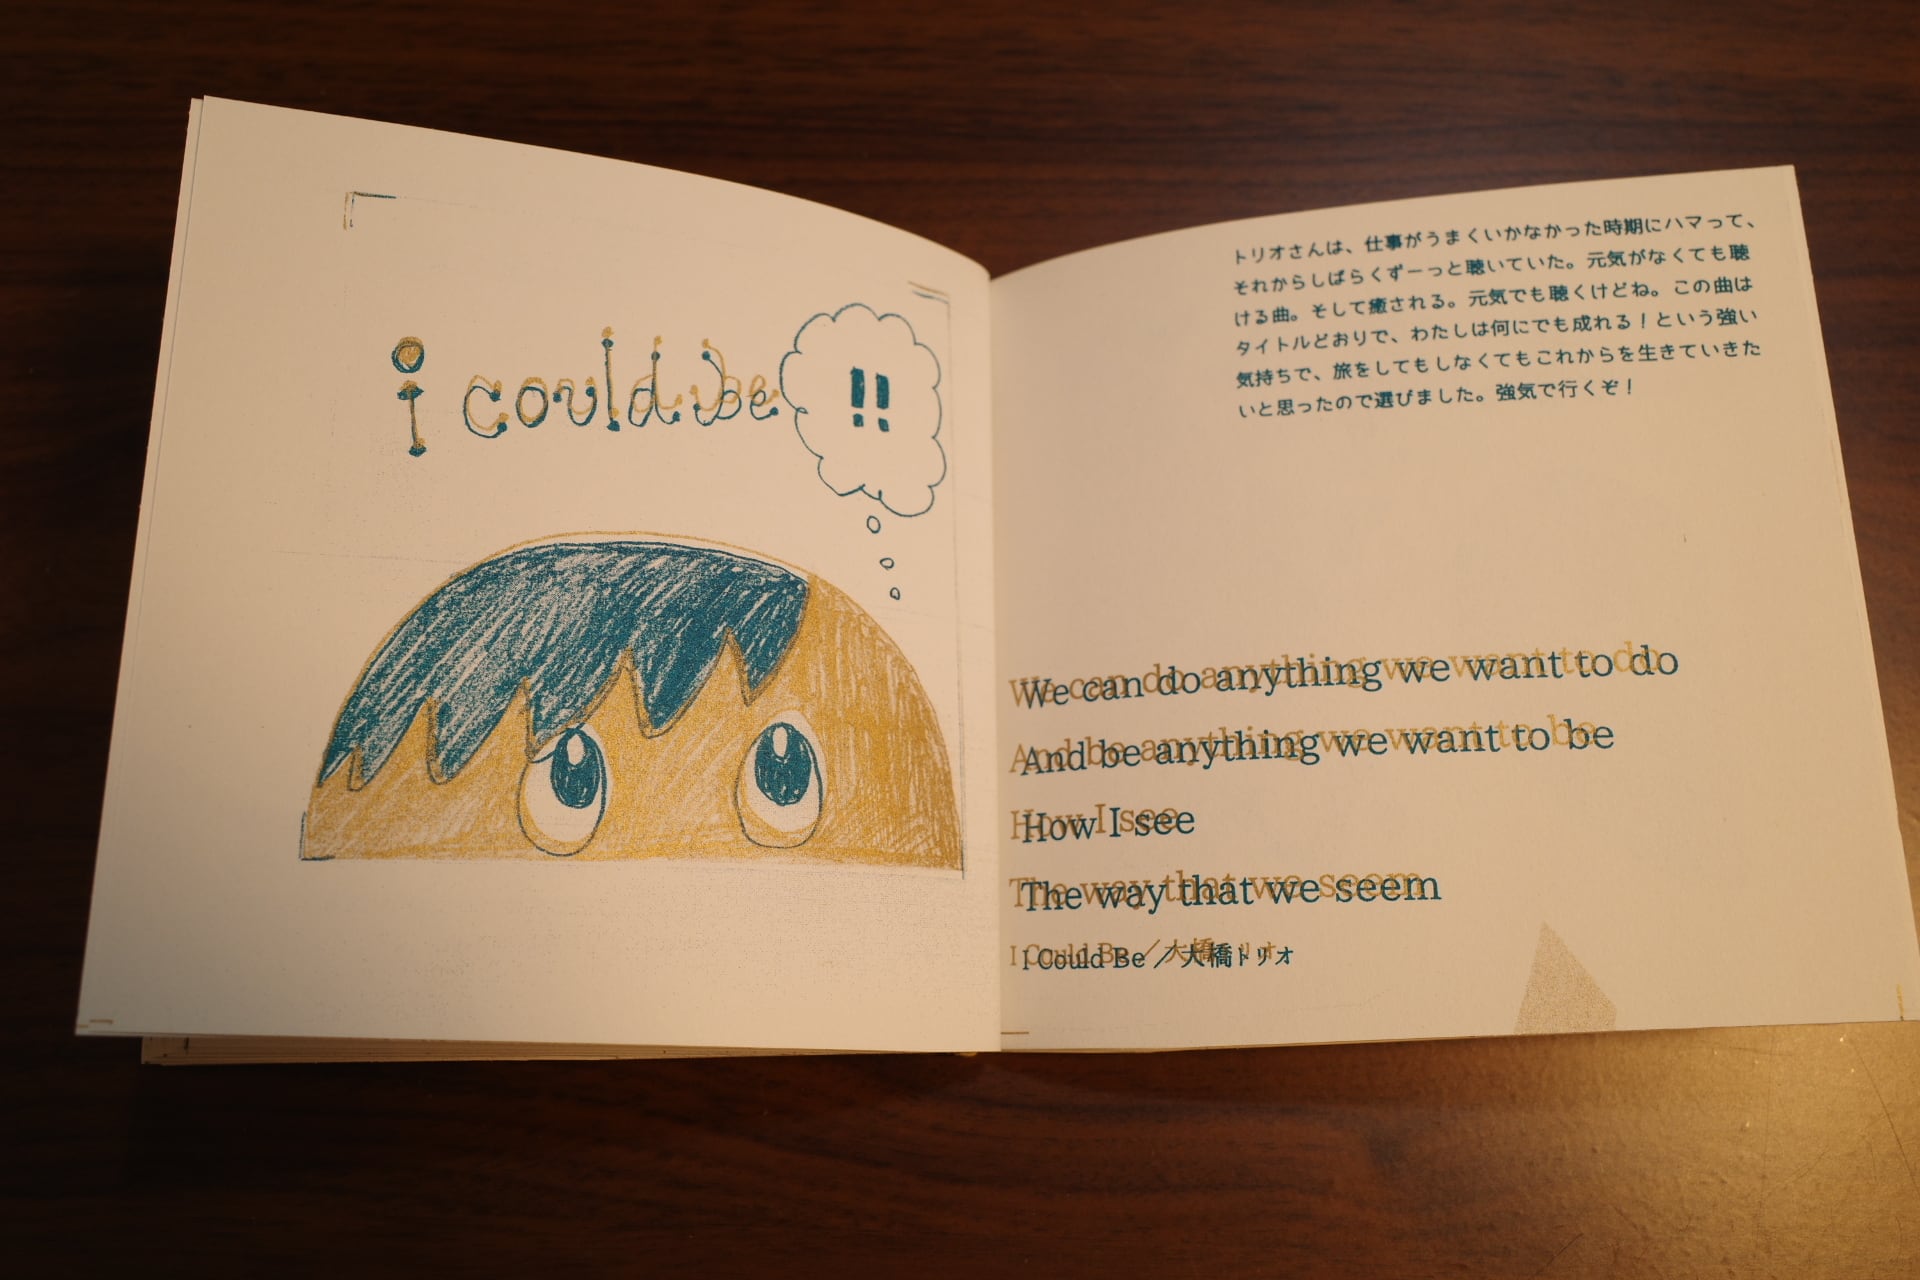 i could be
!!
トリオさんは、仕事がうまくいかなかった時期にハマって、
それからしばらくずーっと聴いていた。元気がなくても聴
ける曲。そして癒される。元気でも聴くけどね。この曲は
タイトルどおりで、わたしは何にでも成れる！という強い
気持ちで、旅をしてもしなくてもこれからを生きていきた
いと思ったので選びました。強気で行くぞ！
We can do anything we want to do
And be anything we want to be
How I see
The way that we seem
I Could Be／大橋トリオ